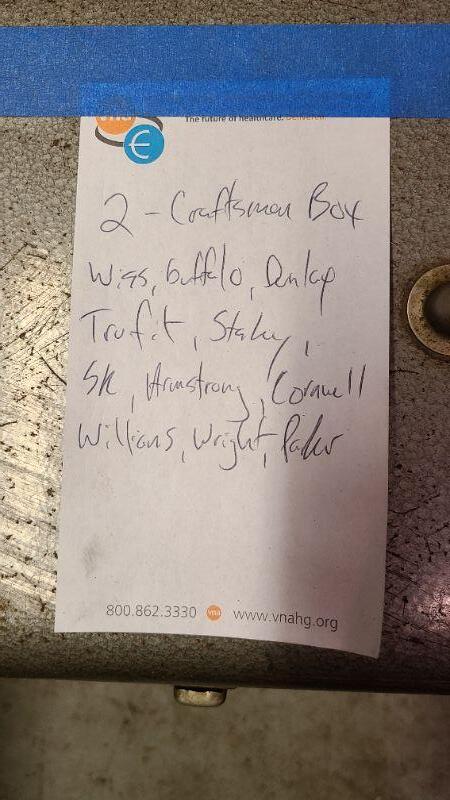 vna
The future of healthcare. Delivered.
€
2 - Craftsman Box
Wiss, Buffalo, Dunlap
Trufit, Stanley,
SK, Armstrong, Cornwell
Willians, Wright, Parker
800.862.3330 vna www.vnahg.org